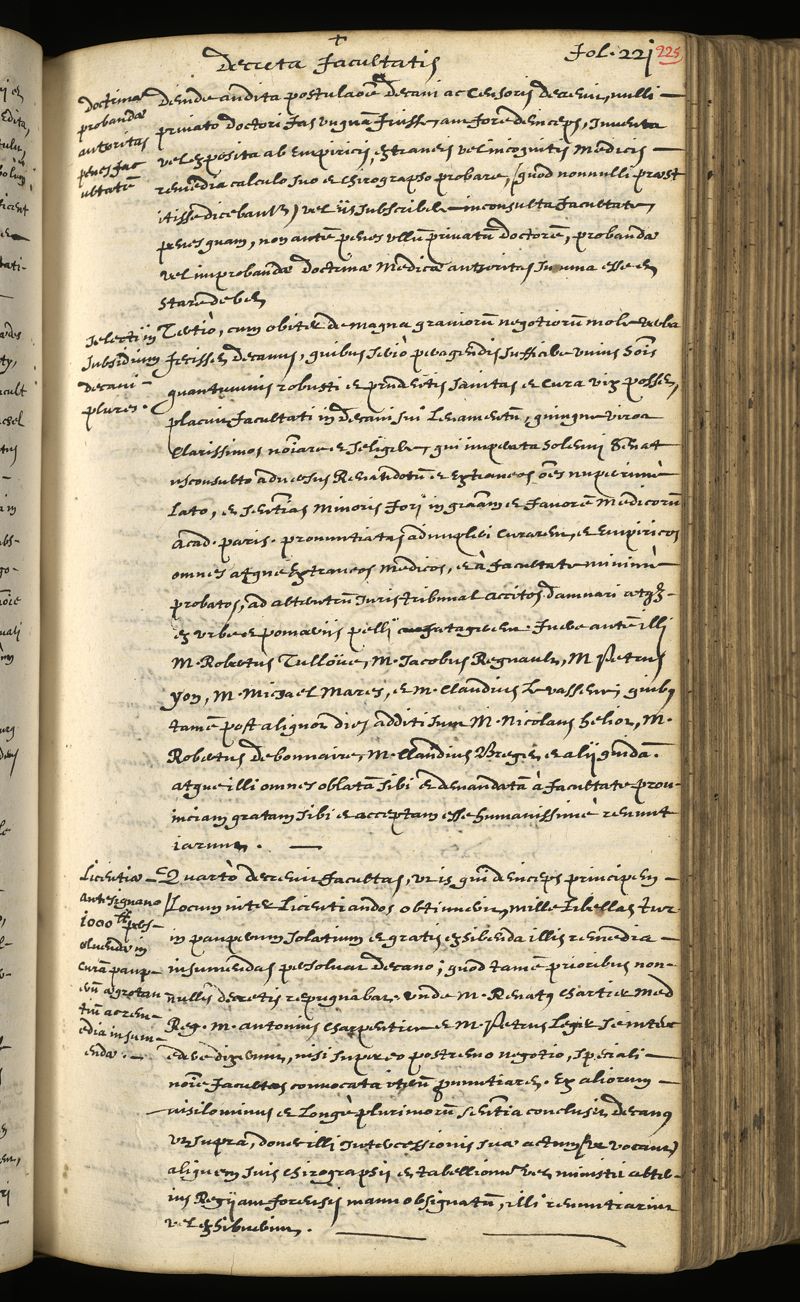 +
Decreta Facultatis
Fol. 221
225
Doctrinae
probandae
authoritas
penes fac
ultatē
Deinde audita postulaōe Decani ac Censoris decrevit, nulli
privato doctori fas unquā fuisse, aut fore deinceps, inventa
vel exposita ab Empiricis, extraneis vel incognitis Medicis
remedia calculo suo et chirographo probare, (quod nonnulli praest
itisse dicebantur) vel iis subscribere inconsulta facultate,
penes quam, non autē penes ullū privatū doctorē, probandae
vel improbandae doctrinae Medicae authoritas summa esse et
stare debet
Selecti in
subsidium
decani
plures.
Tertiò, cum obiter de magna graviorū negotiorū mole verba
fecisset decanus, quibus seriò peragendis sufficere unius hōis
quantumvis robusti et prudētis sanitas et cura vix posset,
placuit facultati in Decani sui levamentū, quinque viros
Clarissimos nōiare et seligere, qui imperata solemni Senat
usconsulto adversus Renaudotū et Extraneos ōes nuperrimè
lato, et sentētias Minoris fori in grāam et favorē Medicorū
Acad. paris. pronuntiatas adimpleri curarent, et Empiricos
omnes atque Extraneos Medicos, et à facultate minimè
probatos, ad alterutrū Juris tribunal accitos damnari atq3
ex urbe et pomaeriis pelli satagerent. Fuere autē illi
M. Robertus Tullöüe, M. Jacobus Regnault, M Petrus
Yon, M. Michael Mares, et M. Claudius Le vasseur; quibꝯ
tamē post aliquot dies additi sunt M. Nicolaus helior, M.
Robertus debonnaire, M. Claudius Breget et alij quidā.
atque illi omnes oblatā sibi et demandatā à facultate prov-
inciam gratam sibi et acceptam esse humanissimè renunt
iarunt.
Licentiae
antesignano
1000 lb pers-
olvendae in
curam paup-
erū aegrotan
tiū ac rem-
edia insum-
endae.
Quartò decrevit facultas, ut is qui deinceps principem
Locum inter Licentiandos obtinuerit, mille libellas tur.
in pauperum solatium et gratis exhibenda illis remedia
insumendas persolvat Decano; quod tamē prioribus non-
nullis decretis repugnabat. Unde M. Renatꝯ Chartier Med
Reg. M. Antonius Charpentier et M. Petrus Legier se inter
cedere dixerunt, nisi super eo postremo negotio, speciali
nōie facultas convocata iterū pronuntiaret. Ex aliorum
nihilominus et longè plurimorū sentētia conclusit Decanꝯ
ut supra, donec illi intercessionis suae actum (ut vocant)
aliquem suis chirographis et tabellionū vel ministri alter-
ius Regij aut forensis manu obsignatū, illi renuntiarint
vel exhibuerint.